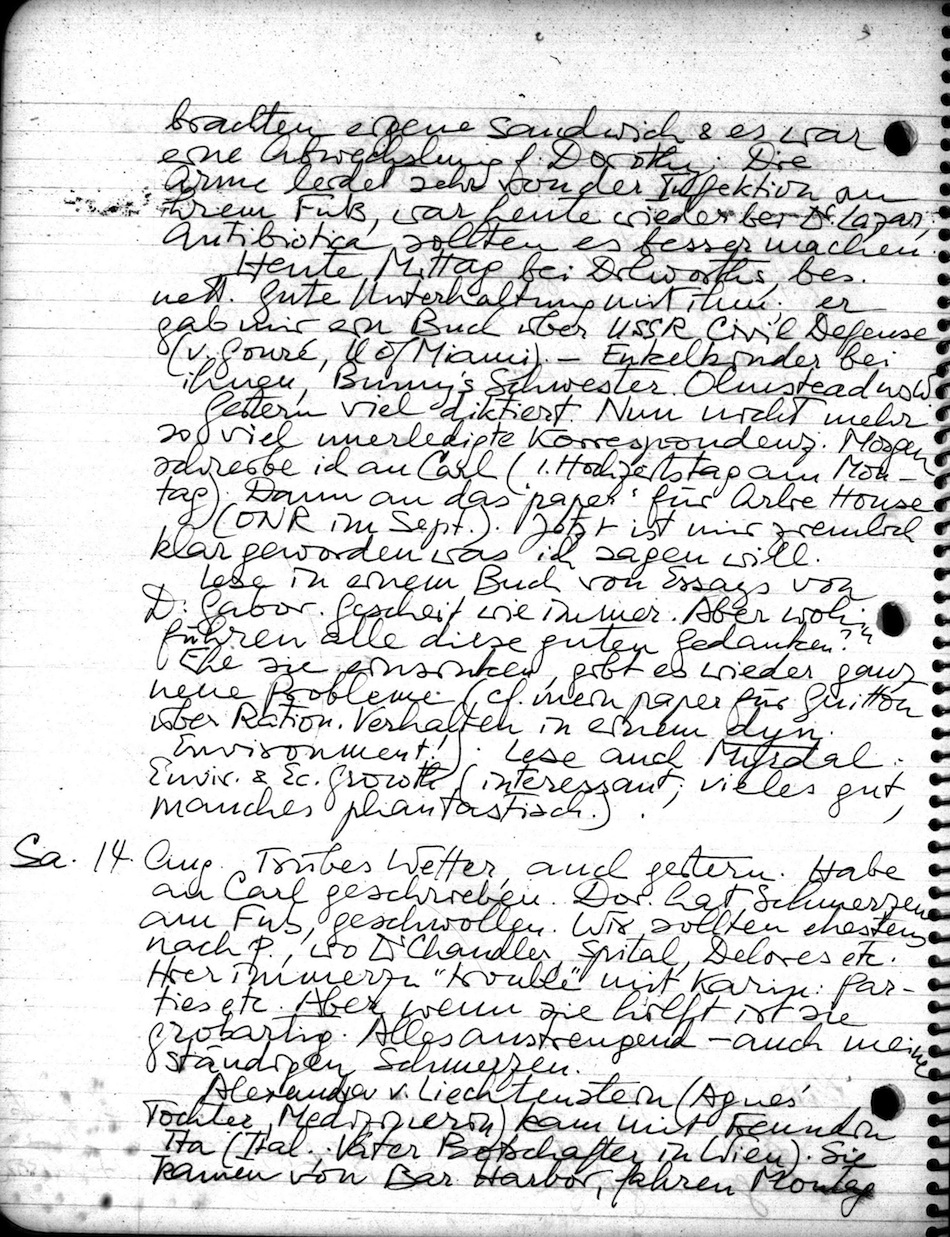 brachten eigene Sandwich & es war
eine Abwechslung f. Dorothy. Die
Arme leidet sehr von der Infektion an
ihrem Fuß, war heute wieder bei Dr Lazar,
Antibiotica sollten es besser machen.
Heute Mittag bei Dilworths, bes.
nett. Gute Unterhaltung mit ihm; er
gab mir ein Buch über USSR Civil Defense
(v. Gouré, U of Miami). – Enkelkinder bei
ihnen, Bunny's Schwester Olmstead
Gestern viel diktiert. Nun nicht mehr
so viel unerledigte Korrespondenz. Morgen
schreibe ich an Carl (1. Hochzeitstag am Mon-
tag). Dann an das "paper" für Arlie House
(ONR im Sept.). Jetzt ist mir ziemlich
klar geworden was ich sagen will.
Lese in einem Buch von Essays von
D. Gabor. Gescheit wie immer. Aber wohin
führen alle diese guten Gedanken?
Ehe sie einsinken, gibt es wieder ganz
neue Probleme. (cf. mein paper für Guitton
über Ration. Verhalten in einem dyn.
Environment!). Lese auch Myrdal.
Envir. & Ec. Growth (interessant, vieles gut,
manches phantastisch.).
Sa. 14. Aug. Trübes Wetter, auch gestern. Habe
an Carl geschrieben. Dor. hat Schmerzen
am Fuß, geschwollen. Wir sollten ehestens
nach P., wo Dr Chandler, Spital, Delores etc.
Hier immerzu "trouble" mit Karin: Par-
ties etc. Aber wenn sie hilft ist sie
großartig. Alles anstrengend – auch meine
ständigen Schmerzen.
Alexandra v. Liechtenstein (Agnes'
Tochter, Medizinerin) kam mit Freundin
Ita (Ital. Vater Botschafter in Wien). Sie
kamen von Bar Harbor, fahren Montag